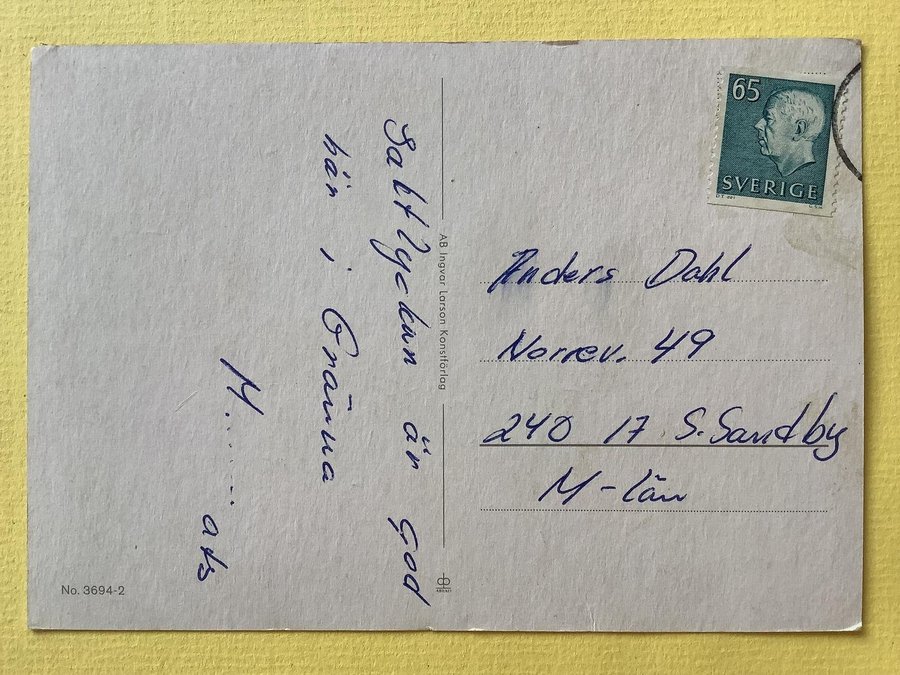 Jaktlyckan är god
här i Gränna
M...... ats
No. 3694-2
AB Ingvar Larson Konstförlag
65
SVERIGE
Anders Dahl
Norrev. 49
240 17 S. Sandby
M-län